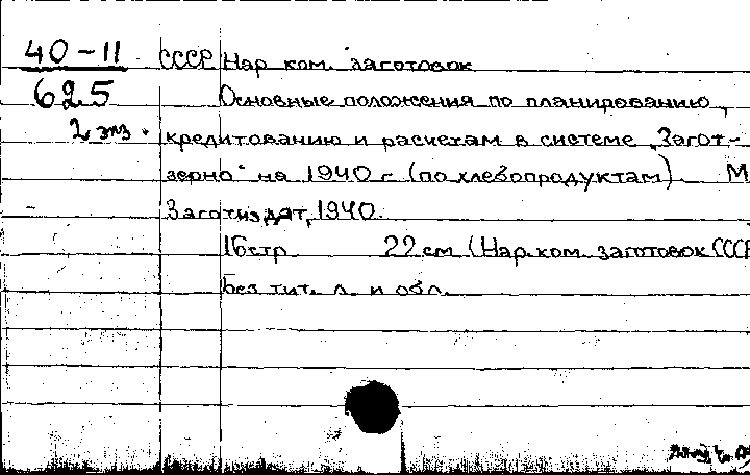 40-11 СССР Нар ком. заготовок
625 Основные положения по планированию,
2 экз. кредитованию и расчетам в системе „Загот-
зерно" на 1940 г. (по хлебопродуктам) М
Заготиздат, 1940.
16 стр. 22 см (Нар. ком. заготовок СССР
Без тит. л. и обл.